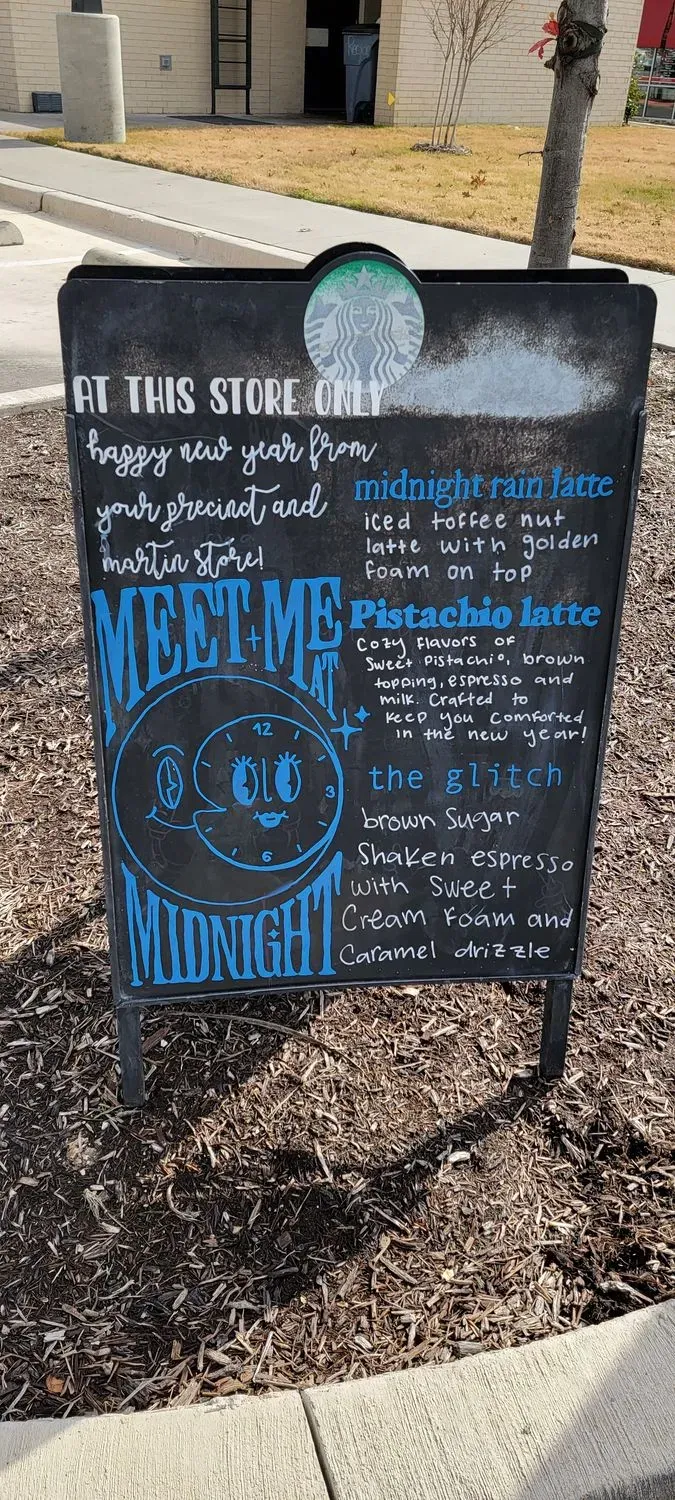 AT THIS STORE ONLY
happy new year from
your precinct and
martin store!
MEET+ME
AT
12
3
6
MIDNIGHT
midnight rain latte
iced toffee nut
latte with golden
foam on top
Pistachio latte
Cozy flavors of
Sweet Pistachio, brown
topping, espresso and
milk. Crafted to
keep you comforted
in the new year!
the glitch
brown Sugar
Shaken espresso
with Sweet
Cream Foam and
Caramel drizzle